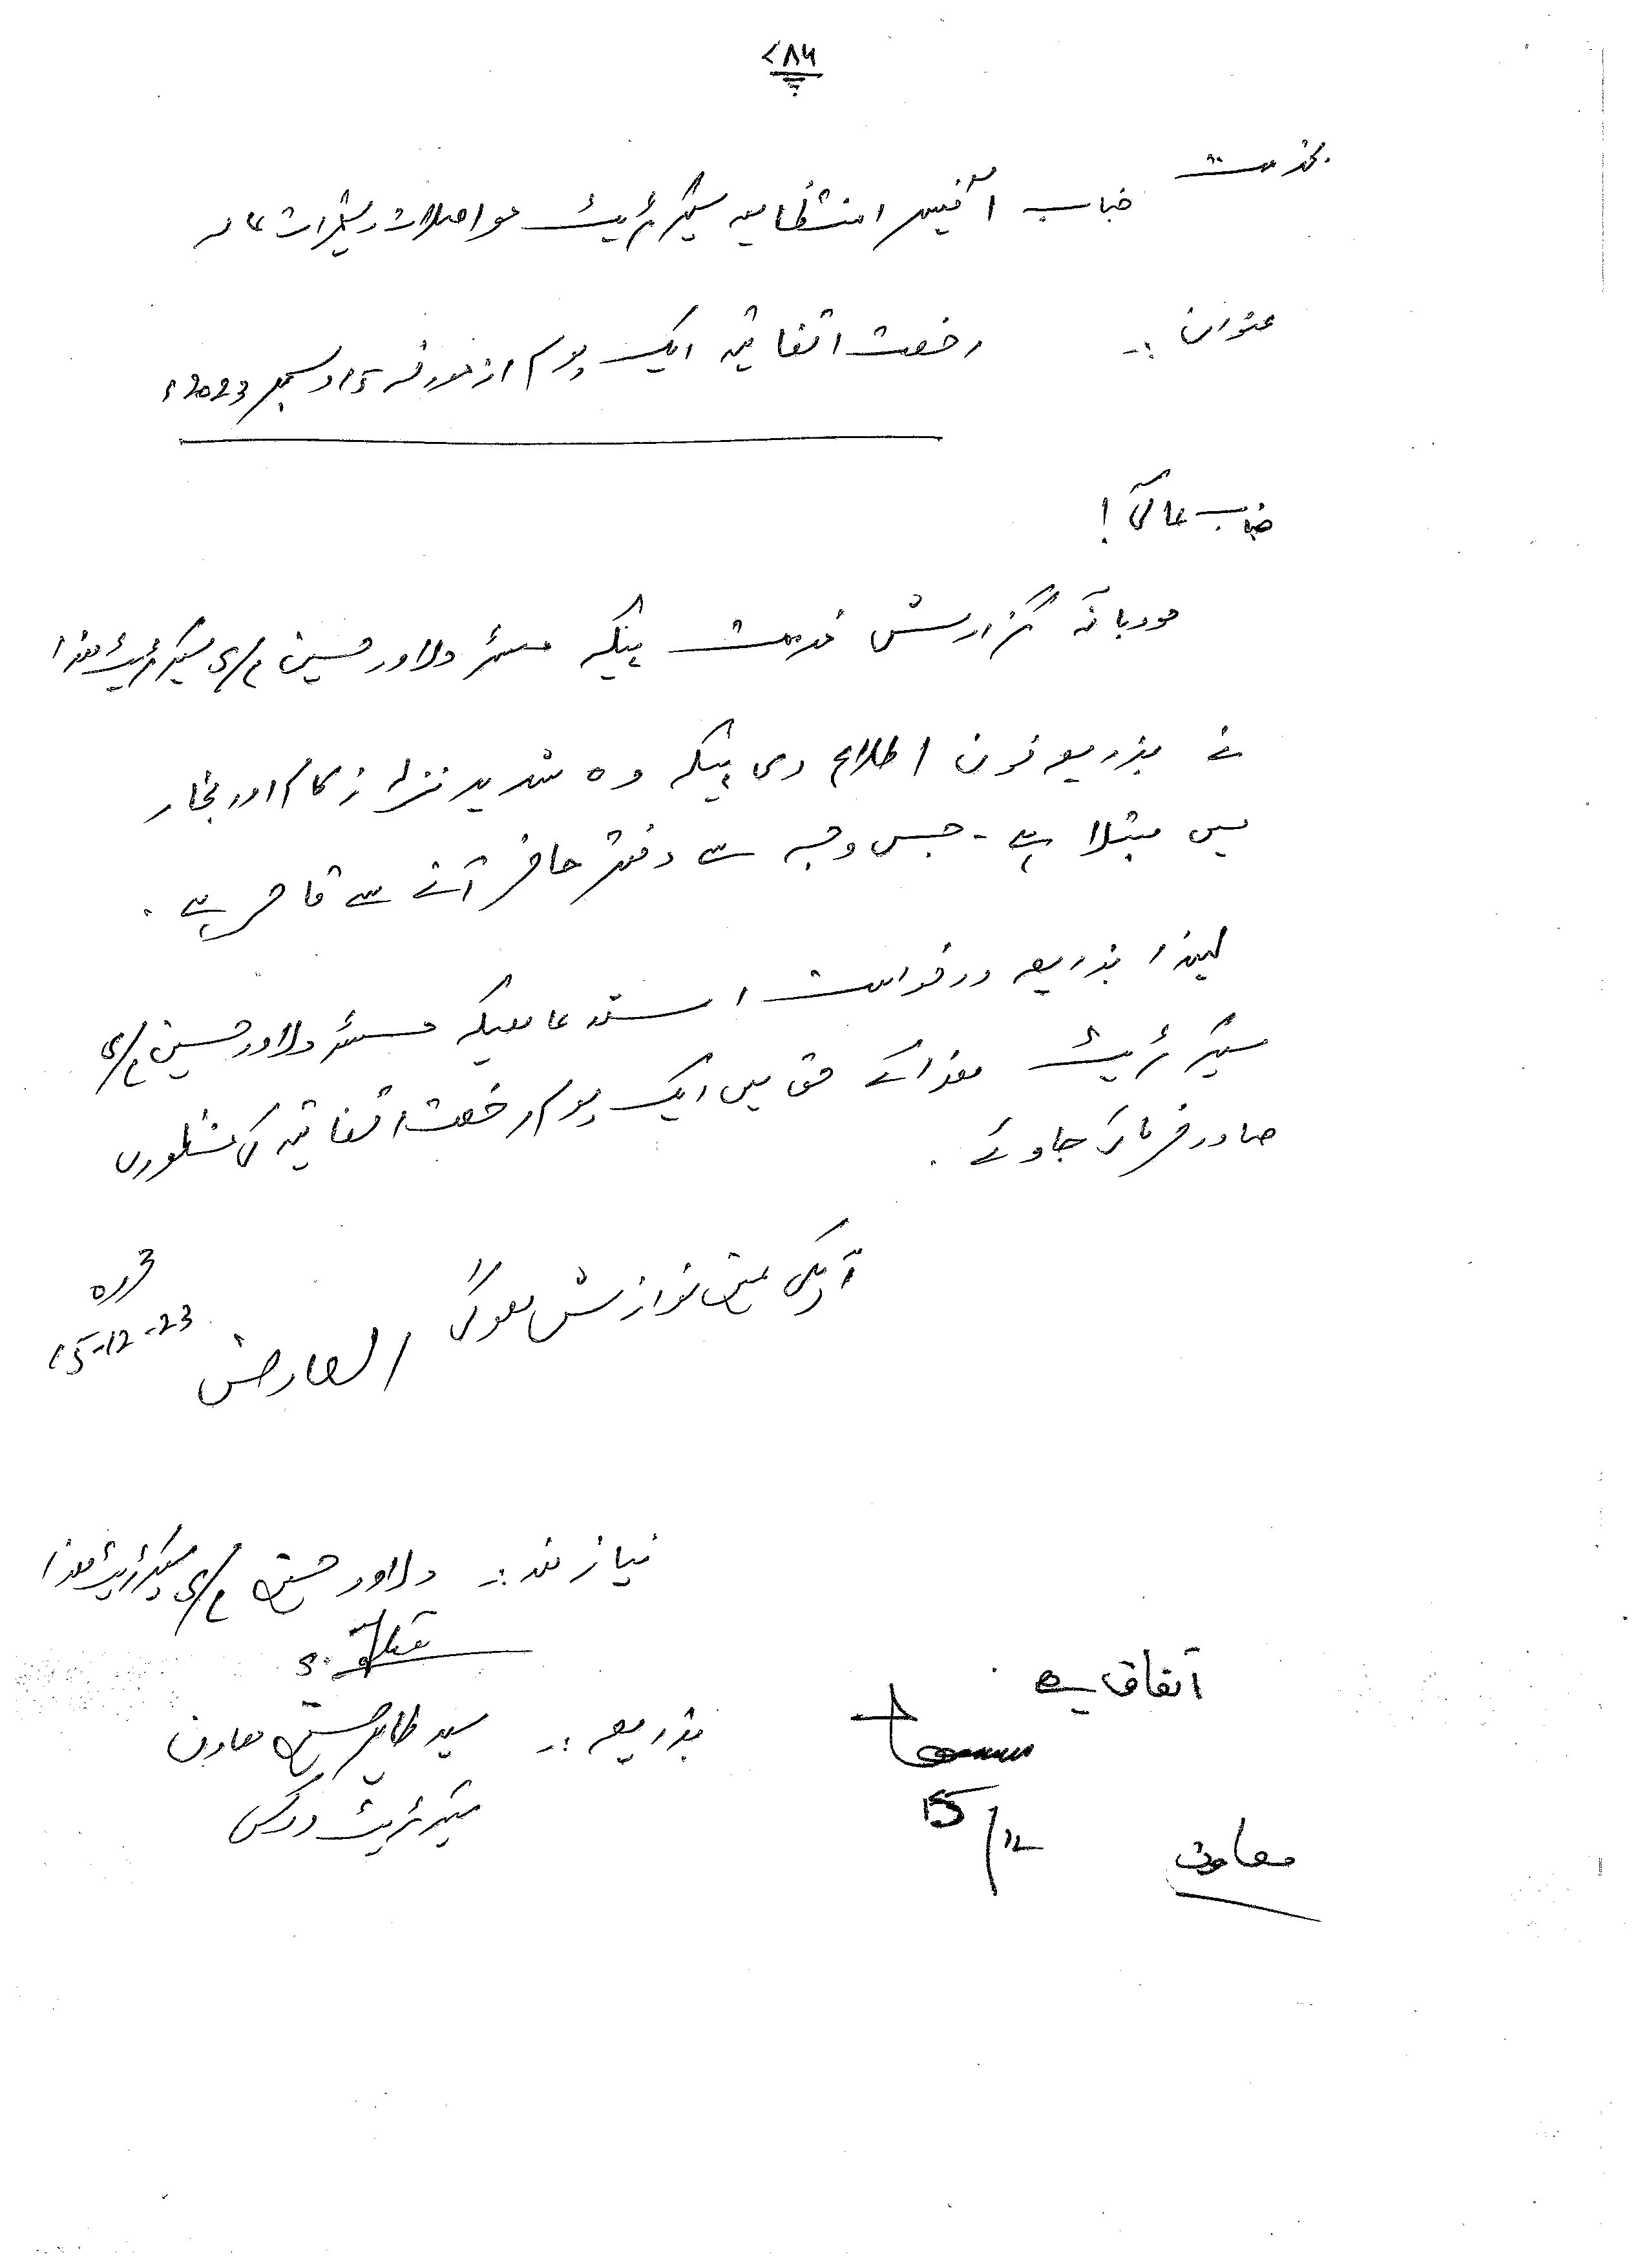 ۷۸۶
بخدمت
جناب آفیسر انتظامیہ سیکرٹریٹ مواصلات و تعمیرات عامہ
عنوان :-
رخصت اتفاقیہ ایک یوم از مورخہ 15 دسمبر 2023ء
جناب عالی !
مودبانہ گزارش خدمت ہیکہ مسٹر دلاور حسین سیکرٹریٹ ھذا
نے بذریعہ فون اطلاع دی ہیکہ وہ شدید نزلہ زکام اور بخار
میں مبتلا ہے - جس وجہ سے دفتر حاضر آنے سے قاصر ہے .
لہذا بذریعہ درخواست استدعا ھیکہ مسٹر دلاور حسین
سیکرٹریٹ ھذا کے حق میں ایک یوم رخصت اتفاقیہ کی منظوری
صادر فرمائی جاوئے .
آپکی عین نوازش ھوگی
العارض
محررہ
15-12-23
نیاز مند :- دلاور حسین سیکرٹریٹ ھذا
بذریعہ :- سید طاہر حسین معاون
سیکرٹریٹ ورکس
اتفاق ہے
15/12
معاون